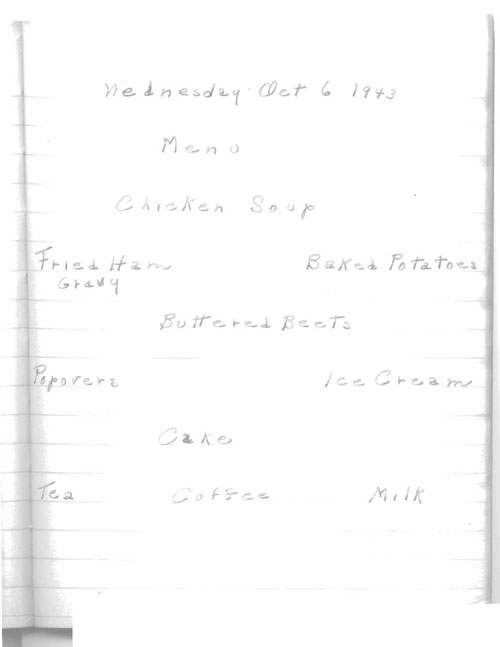 Wednesday Oct 6 1943
Menu
Chicken Soup
Fried Ham Baked Potatoes
Gravy
Buttered Beets
Popovers Ice Cream
Cake
Tea Coffee Milk